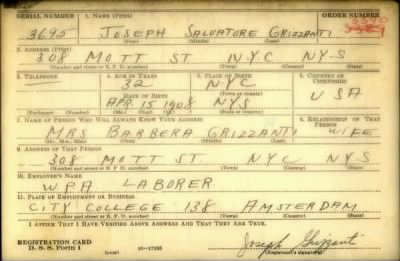 SERIAL NUMBER 1. NAME (Print) ORDER NUMBER
3695 JOSEPH SALVATORE GRIZZANTI
2. ADDRESS (Print)
308 MOTT ST. N.Y.C N.Y.S
(Number and street or R. F. D. number) (Town) (County) (State)
3. TELEPHONE 4. AGE IN YEARS 5. PLACE OF BIRTH 6. COUNTRY OF CITIZENSHIP
32 N.Y.C
DATE OF BIRTH (Town or county) USA
APR. 15 1908 NYS
(Exchange) (Number) (Mo.) (Day) (Yr.) (State or country)
7. NAME OF PERSON WHO WILL ALWAYS KNOW YOUR ADDRESS 8. RELATIONSHIP OF THAT PERSON
MRS BARBERA GRIZZANTI WIFE
(Mr., Mrs., Miss) (First) (Middle) (Last)
9. ADDRESS OF THAT PERSON
308 MOTT ST. NYC NYS
(Number and street or R. F. D. number) (Town) (County) (State)
10. EMPLOYER'S NAME
WPA LABORER
11. PLACE OF EMPLOYMENT OR BUSINESS
CITY COLLEGE 138 AMSTERDAM
(Number and street or R. F. D. number) (Town) (County) (State)
I AFFIRM THAT I HAVE VERIFIED ABOVE ANSWERS AND THAT THEY ARE TRUE.
REGISTRATION CARD
D. S. S. FORM 1 16-17105 Joseph Grizzanti
(Registrant's signature)